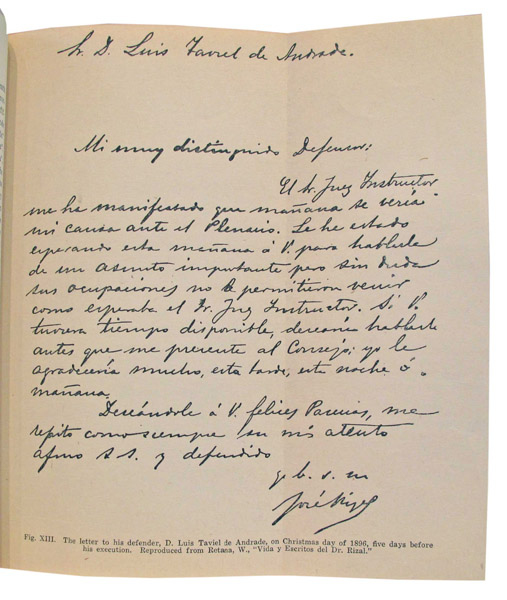 Sr. D. Luis Taviel de Andrade.
Mi muy distinguido Defensor:
El Sr. Juez Instructor
me ha manifestado que mañana se vería
mi causa ante el Plenario. Le he estado
esperando esta mañana á V. para hablarle
de un asunto importante pero sin duda
sus ocupaciones no le permitieron venir
como esperaba el Sr. Juez Instructor. Si V.
tuviera tiempo disponible, desearía hablarle
antes que me presente al Consejo; yo le
agradecería mucho, esta tarde, esta noche ó
mañana.
Deseándole á V. felices Pascuas, me
repito como siempre su más atento
afmo S. S. y defendido
q. b. s. m
José Rizal
Fig. XIII. The letter to his defender, D. Luis Taviel de Andrade, on Christmas day of 1896, five days before
his execution. Reproduced from Retana, W., "Vida y Escritos del Dr. Rizal."